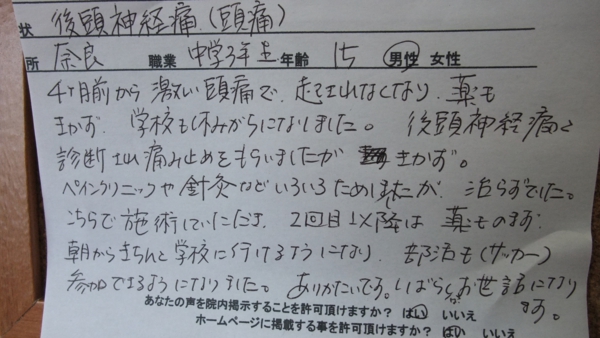 状 後頭神経痛(頭痛)
所 奈良 職業 中学3年生 年齢 15 男性 女性
4ヶ月前から激しい頭痛で、起き上れなくなり、薬も
きかず、学校も休みがちになりました。後頭神経痛と
診断され痛み止めをもらいましたが きかず。
ペインクリニックや針灸などいろいろためしましたが、治らずでした。
こちらで施術していただき、2回目以降は薬ものまず、
朝からきちんと学校に行けるようになり、部活も(サッカー)
参加できるようになりました。ありがたいです。しばらくお世話になり
ます。
あなたの声を院内掲示することを許可頂けますか? はい いいえ
ホームページに掲載する事を許可頂けますか? はい いいえ